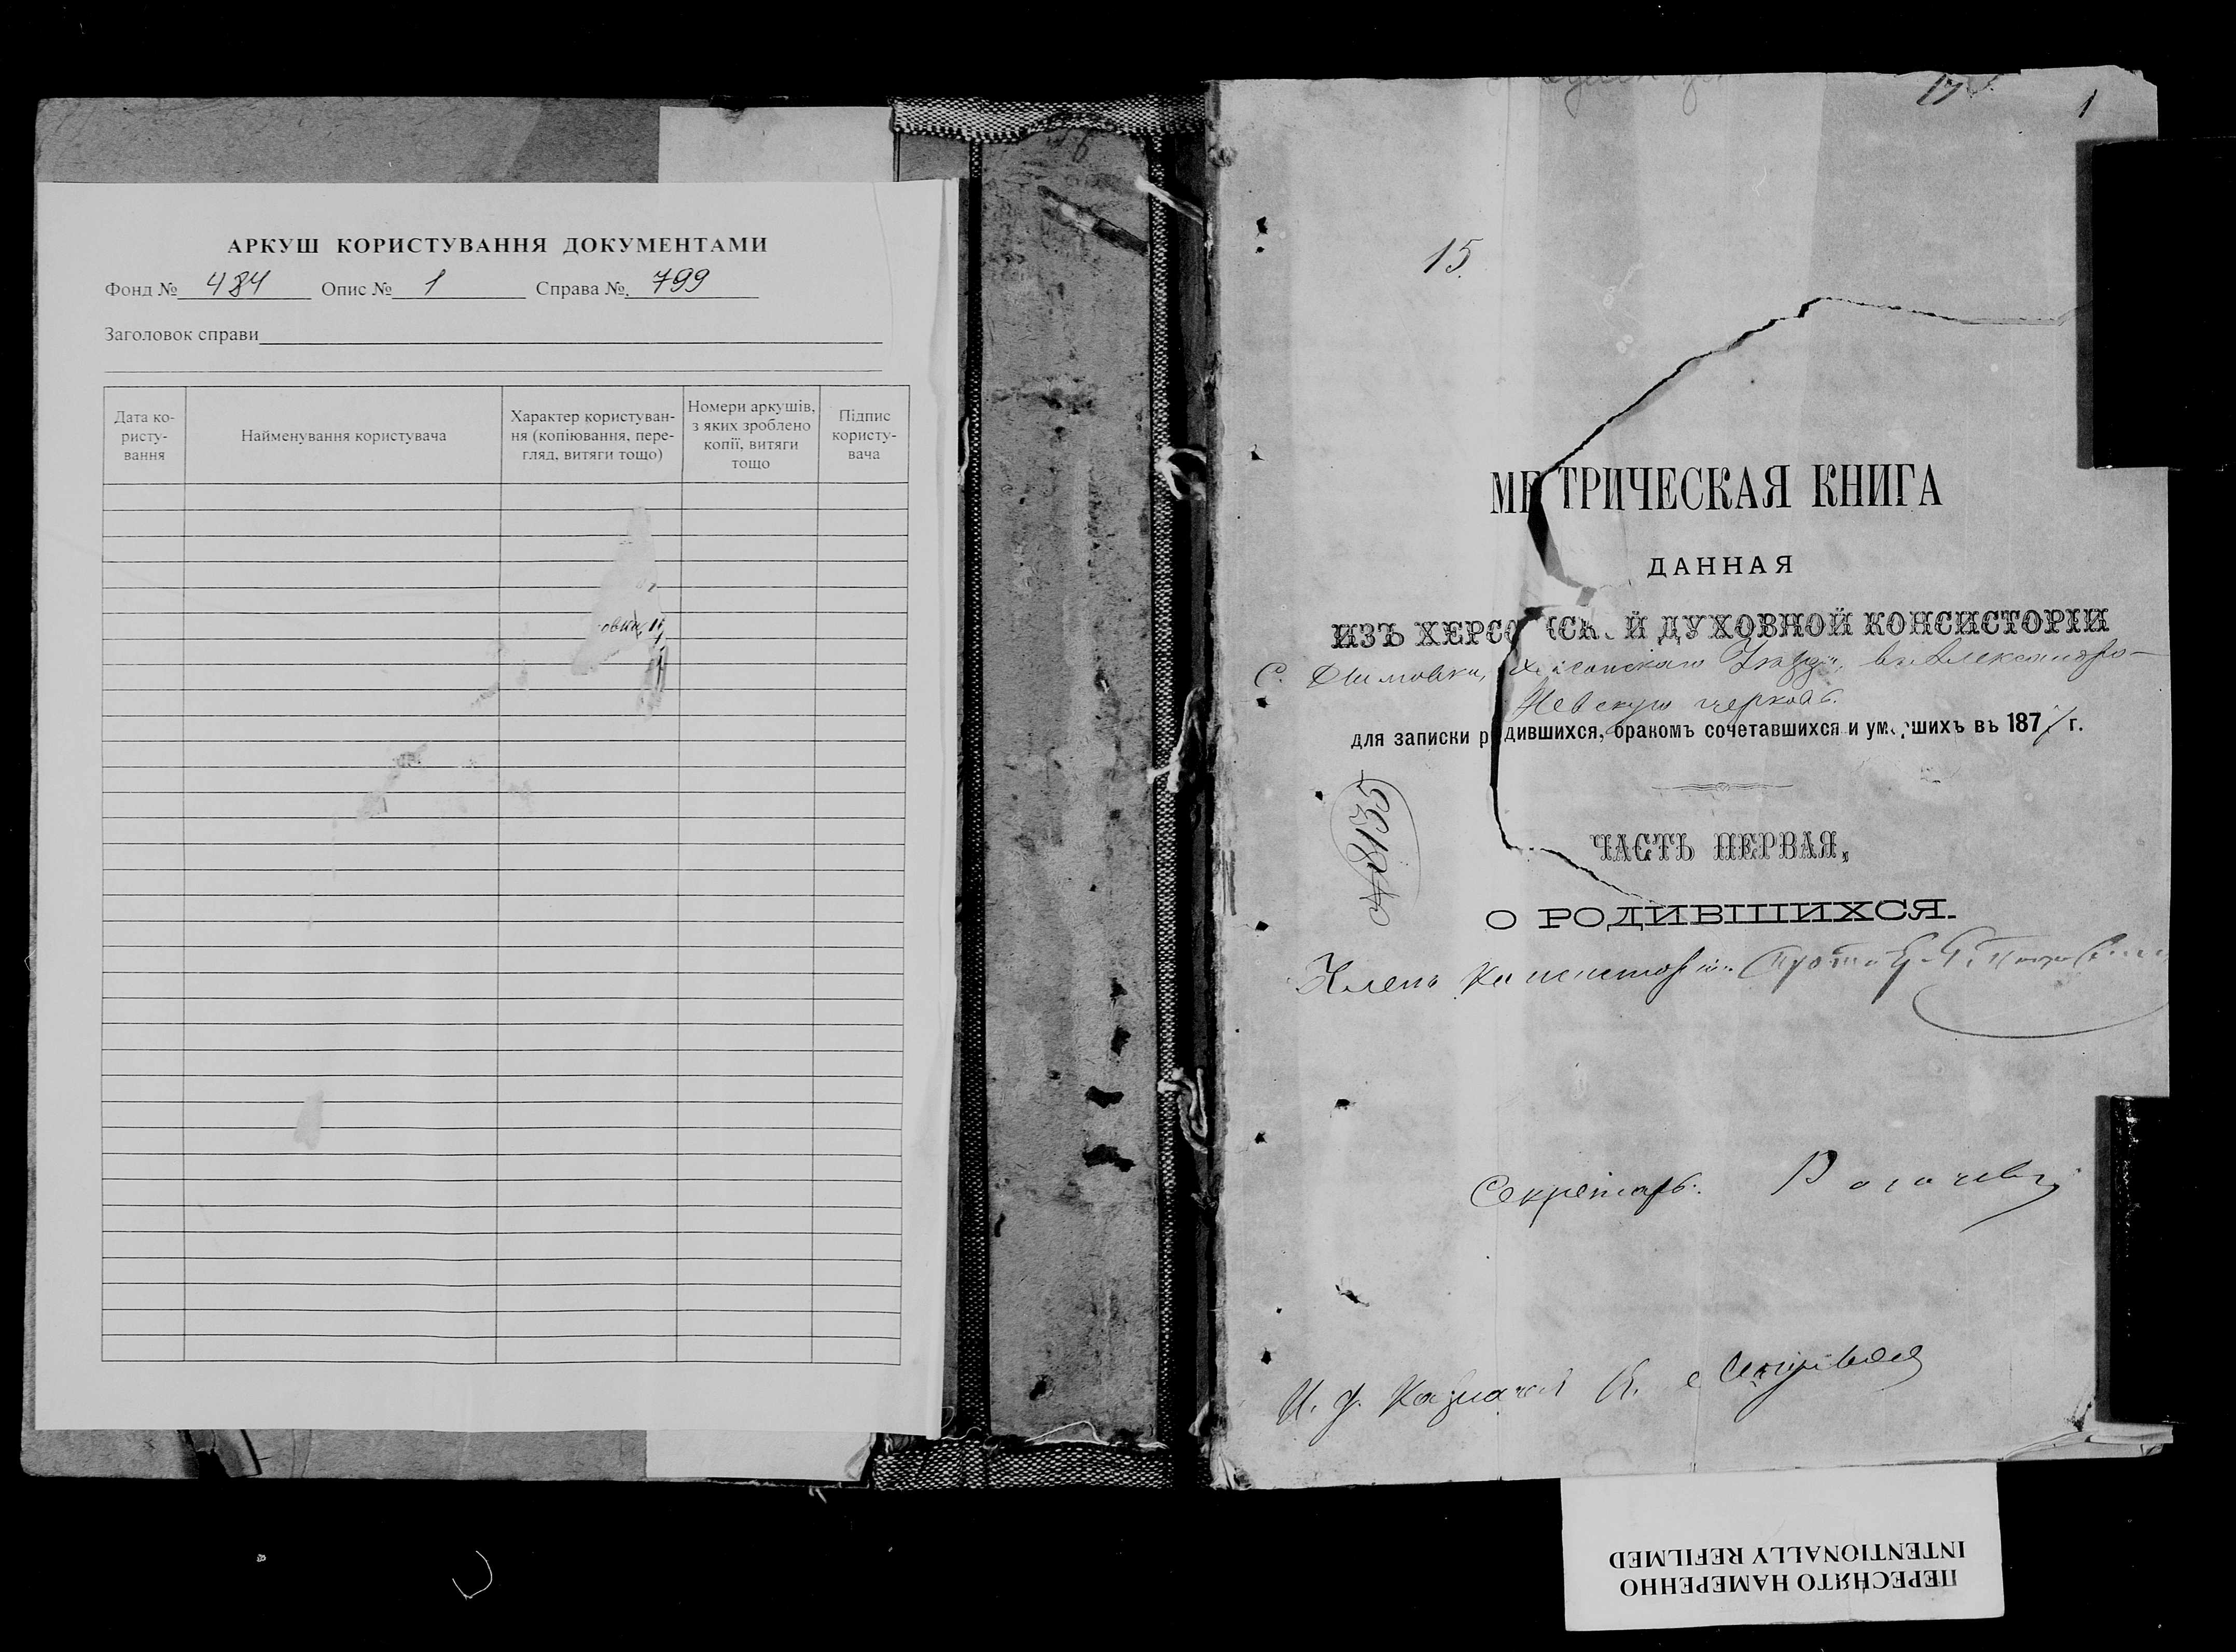 АРКУШ КОРИСТУВАННЯ ДОКУМЕНТАМИ
Фонд № 484 Опис № 1 Справа № 799
Заголовок справи
Дата ко-
ристу-
вання
Найменування користувача
Характер користуван-
ня (копіювання, пере-
гляд, витяги тощо)
Номери аркушів,
з яких зроблено
копії, витяги
тощо
Підпис
користу-
вача
17
1
15
МЕТРИЧЕСКАЯ КНИГА
ДАННАЯ
ИЗЪ ХЕРСОНСКОЙ ДУХОВНОЙ КОНСИСТОРІИ
С. Херсонскаго въ Александро-
Невскую церковь.
для записки родившихся, бракомъ сочетавшихся и умершихъ въ 1877 г.
№ 8135
ЧАСТЬ ПЕРВАЯ,
О РОДИВШИХСЯ.
Членъ Консисторіи
Секретарь
И. д. Казначея
ПЕРЕСНЯТО НАМЕРЕННО
INTENTIONALLY REFILMED